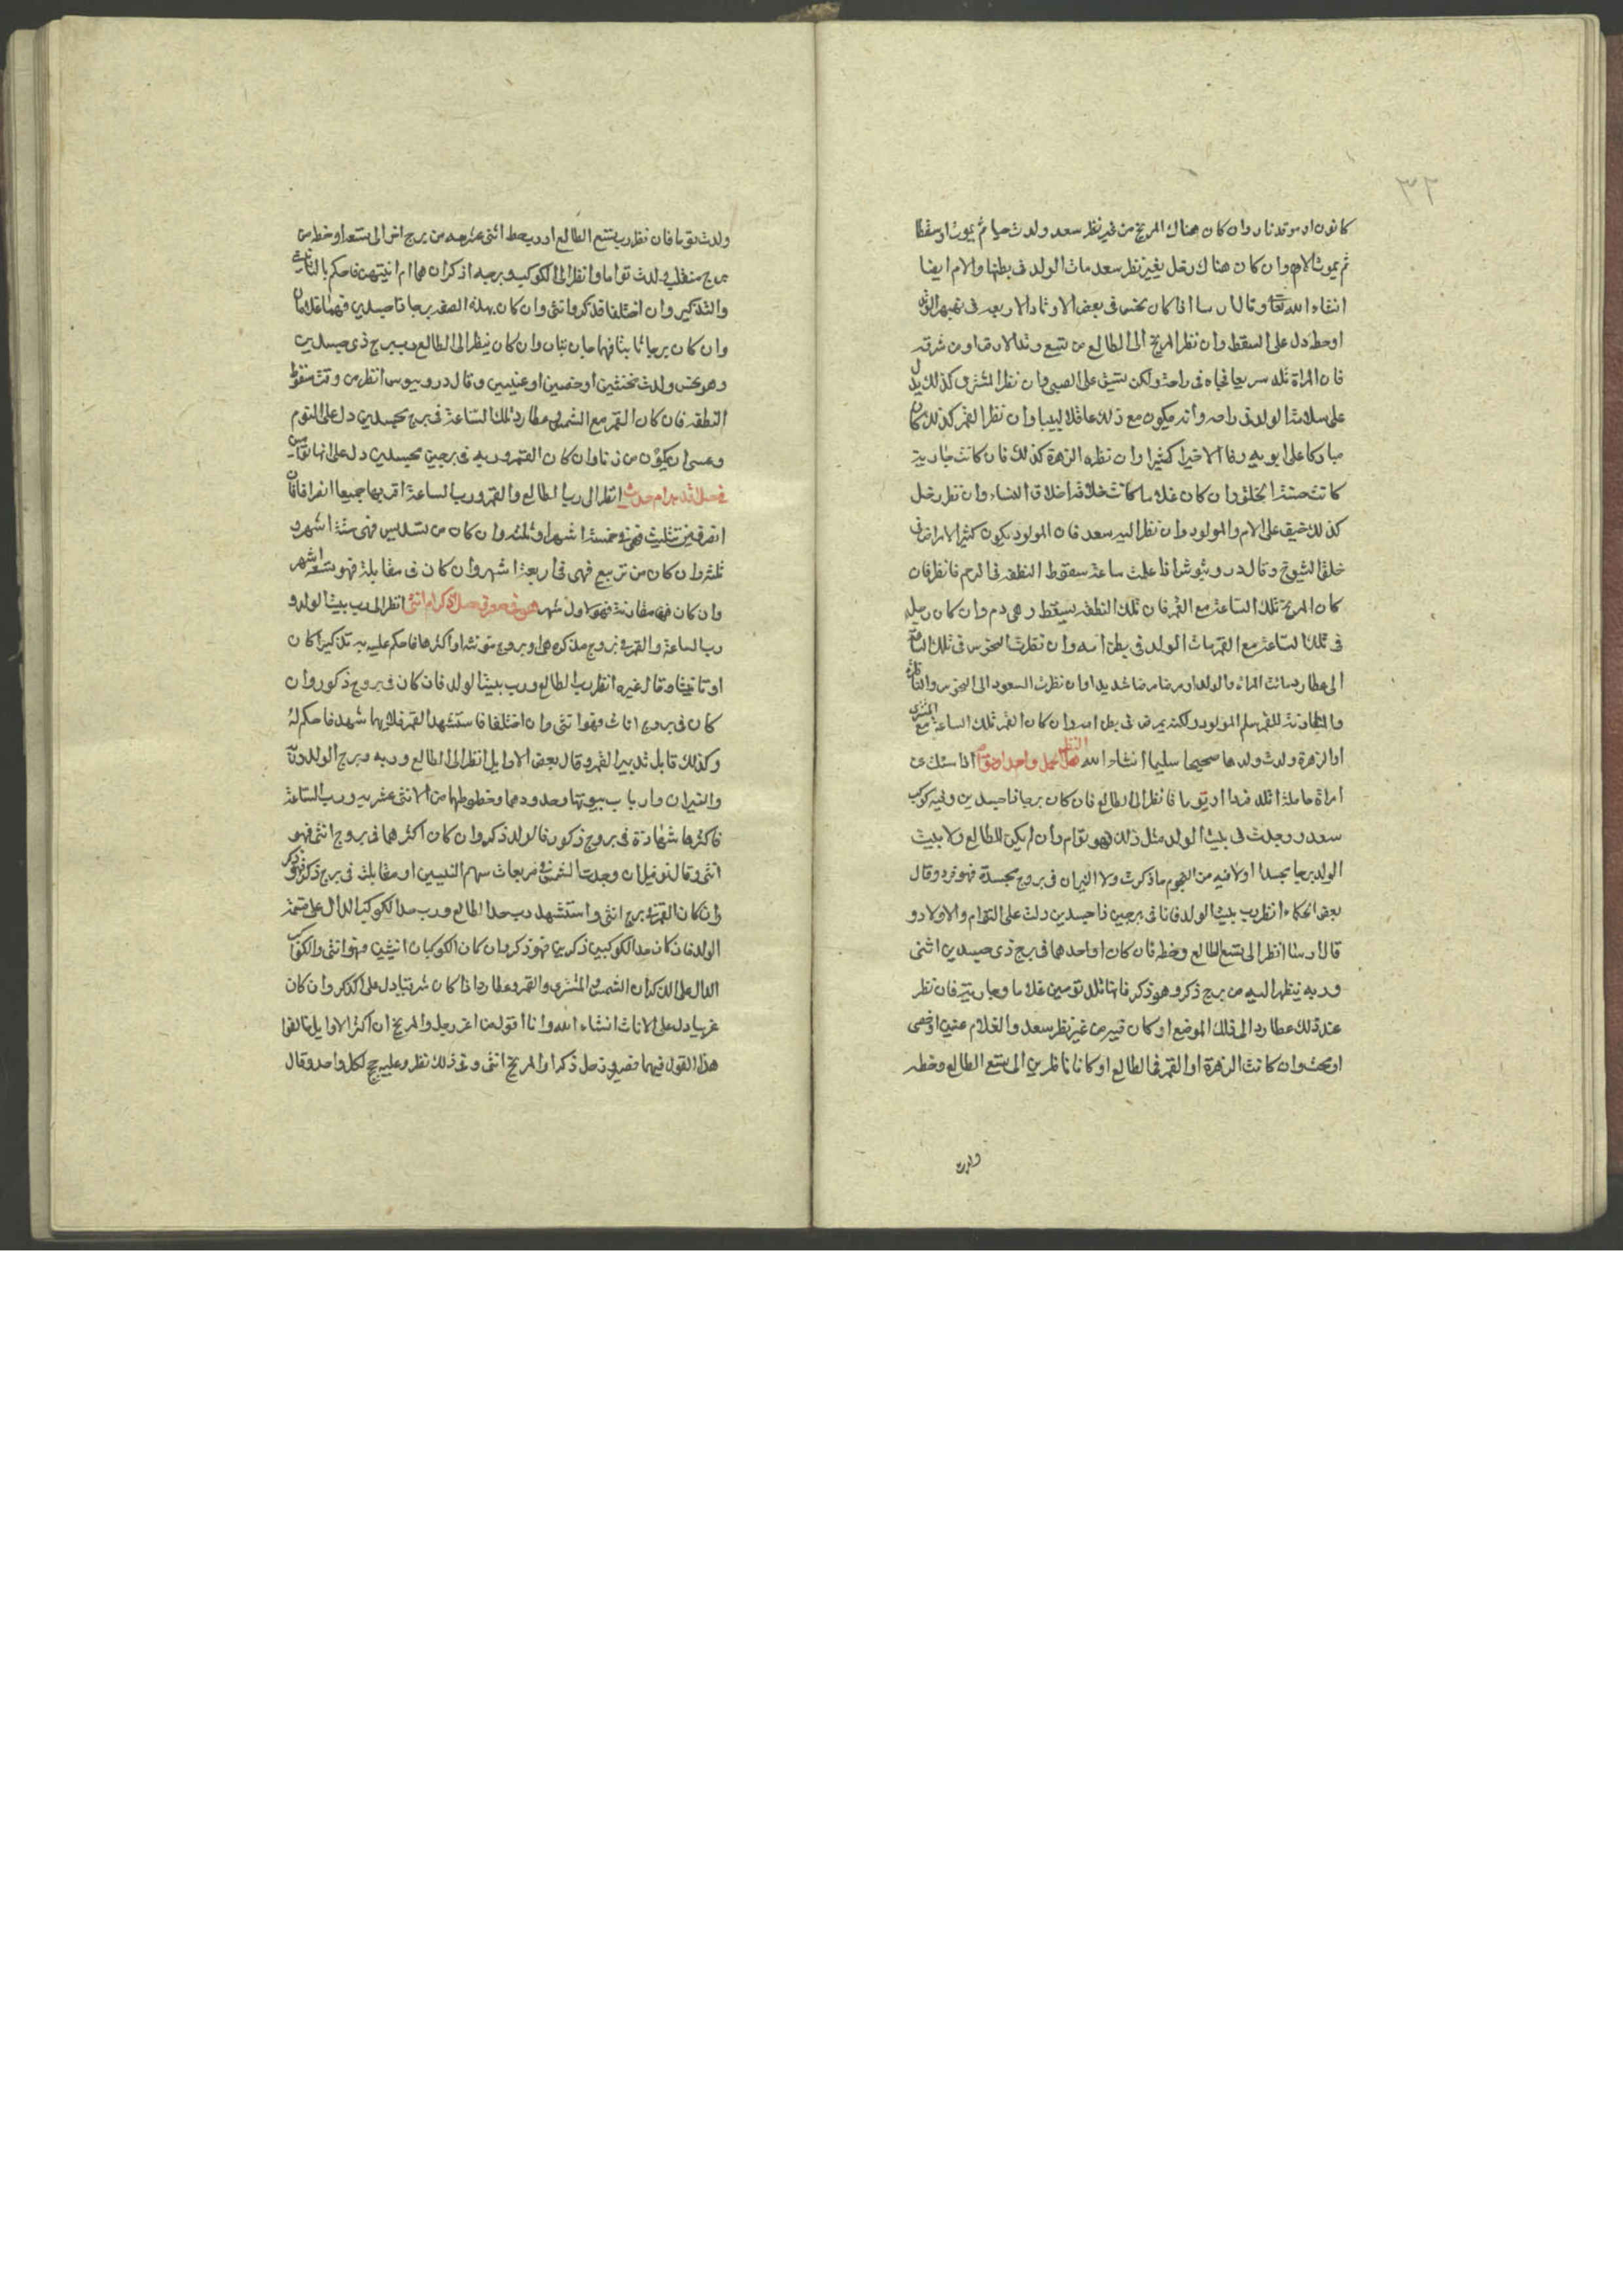 ٣٢
كانون او موقد نار وان كان هناك المريخ من غير نظر سعد ولدت حيا ثم يموت او سقطا
ثم يموت الام وان كان هناك زحل بغير نظر سعد مات الولد في بطنها والام ايضا
انشاء الله تعا وقال ارسا اذا كان نحس في بعض الاوتاد الاربعة
او حط دل على السقط وان نظر المريخ الى الطالع من تسع وتد الارض او من شرقه
فان المراة تلد سريعا نجاه في راحة ولكن يشق على الصبي وان نظر المشتري كذلك يدل
على سلامة الولد في راحة وانه يكون مع ذلك عاقلا لبيبا وان نظر القمر كذلك كان
مباركا على ابويه رفا الا خيرا كثيرا وان نظره الزهرة كذلك فان كانت جارية
كانت حسنة الخلق وان كان غلاما كانت خلاقه اخلاق النساء وان نظر زحل
كذلك ضيق على الام والمولود وان نظر اليه سعد فان المولود يكون كثير الامراض في
خلق الشيوخ وقال دروثيوش اذا علمت ساعة سقوط النطفة في الرحم فانظر فان
كان المريخ تلك الساعة مع القمر فان تلك النطفة يسقط وهي دم وان كان زحل
في تلك الساعة مع القمر مات الولد في بطن امه وان نظرت النحوس في تلك الساعة
الى عطارد ماتت المراة والولد او مرضا مرضا شديدا وان نظرت السعود الى النحوس والناظرة
والمقارنة للقمر سلم المولود ولكنه يمرض في بطن امه وان كان القمر تلك الساعة مع المشتري
او الزهرة ولدت ولدها صحيحا سليما انشاء الله النظر هل الحمل واحد او توام اذا سئلت عن
امراة حاملة اتلد فردا او توما فانظر الى الطالع فان كان برجا ذا جسدين وفيه كوكب
سعد ووجدت في بيت الولد مثل ذلك فهو توام وان لم يكن للطالع ولا بيت
الولد برجا مجسدا او لا فيه من النجوم ما ذكرت ولا النيران في بروج مجسدة فهو فرد وقال
بعض الحكماء انظر رب بيت الولد فاذا في برجين ذا جسدين دلت على التوام والاولاد و
قال ارسا انظر الى تسع الطالع وخطه فان كان او احدهما في برج ذي جسدين اثنى
وربه ينظر اليه من برج ذكر وهو ذكر فانها تلد تومين غلاما وجارية فان نظر
عند ذلك عطارد الى ذلك الموضع او كان فيه من غير نظر سعد والغلام عنين او خصي
او مخنث وان كانت الزهرة او القمر في الطالع او كانا ناظرين الى تسع الطالع وخطه
ولدت
ولدت توما فان نظر رب تسع الطالع او رب حط اثني عشريه من برج اخر الى تسعه او خطه من
برج منقلب ولدت تواما وانظر الى الكوكب وبرجه اذكران هما ام انيثهن فاحكم بالتانيث
والتذكير وان اختلفا فذكر وانثى وان كان بهذه الصفة برجا ذا جسدين فهما غلامان
وان كان برجا ثابتا فهما جاريتان وان كان ينظر الى الطالع رب برج ذي جسدين
وهو نحس ولدت مخنثين او خصيين او عنينين وقال دروبيوس انظر من وقت سقوط
النطفة فان كان القمر مع الشمس وعطارد تلك الساعة في برج مجسدين دل على التوم
وعسى ان يكون من زنا وان كان القمر وربه في برجين مجسدين دل على انها توامين
انظر الى رب الطالع والقمر ورب الساعة اقربها جميعا انصرافا فان
انصرف من تثليث فهي في خمسة اشهر او ثلثه وان كان من تسديس فهي ستة اشهر و
ثلثه وان كان من تربيع فهي في اربعة اشهر وان كان في مقابلة فهو تسعة اشهر
وان كان في مقارنة فهو لاول شهر انظر الى رب بيت الولد و
رب الساعة والقمر في بروج مذكرة هي او بروج مؤنثة او اكثرها فاحكم عليه به تذكيرا كان
او تانيثا وقال غيره انظر رب الطالع ورب بيت الولد فان كان في بروج ذكور وان
كان في بروج اناث فهو انثى وان اختلفا فاستشهد القمر فلايهما شهد فاحكم له
وكذلك قابل تدبير القمر وقال بعض الاوايل انظر الى الطالع وربه وبرج الولد وربه
والنيران وارباب بيوتها وحدودهما وخطوطهما من الاثنى عشريه ورب الساعة
فاكثرها شهادة في بروج ذكور فالولد ذكر وان كان اكثرهما في بروج انثى فهو
انثى وقال نوفيل ان وجدت الشمس في مربعات سهم النيرين او مقابلته في برج ذكر فهو ذكر
وان كان القمر في برج انثى واستشهد رب حد الطالع ورب حد الكوكب الدال على قسمة
الولد فان كان حد الكوكبين ذكرين فهو ذكر وان كان الكوكبان انيثين فهو انثى والكوكب
الدال على الذكران الشمس والمشتري والقمر وعطارد اذا كان شرقيا دل على الذكر وان كان
غربيا دل على الاناث انشاء الله وانا اقول من امر زحل والمريخ ان اكثر الاوايل خالفوا
هذا القول فيهما فصيروا زحل ذكرا والمريخ انثى وفي ذلك نظر وعليه حجج لكل واحد وقال